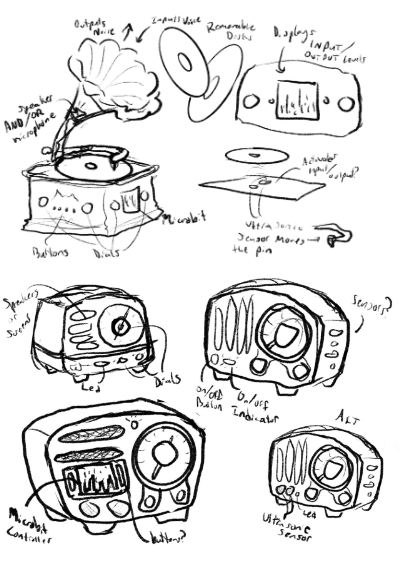 Outputs
Noise
Inputs Voice
Removable
Disks
Displays
INPUT/
OUTPUT Levels
Speaker
AND/OR
microphone
Activates
input/
output?
Microbit
Buttons
Dials
Ultrasonic
Sensor Moves
the pin
Speakers
or
Led
Dials
Sensors?
On/Off
Button
On/Off
Indicator
ALT
Microbit
Controller
buttons?
Led
Ultrasonic
Sensor